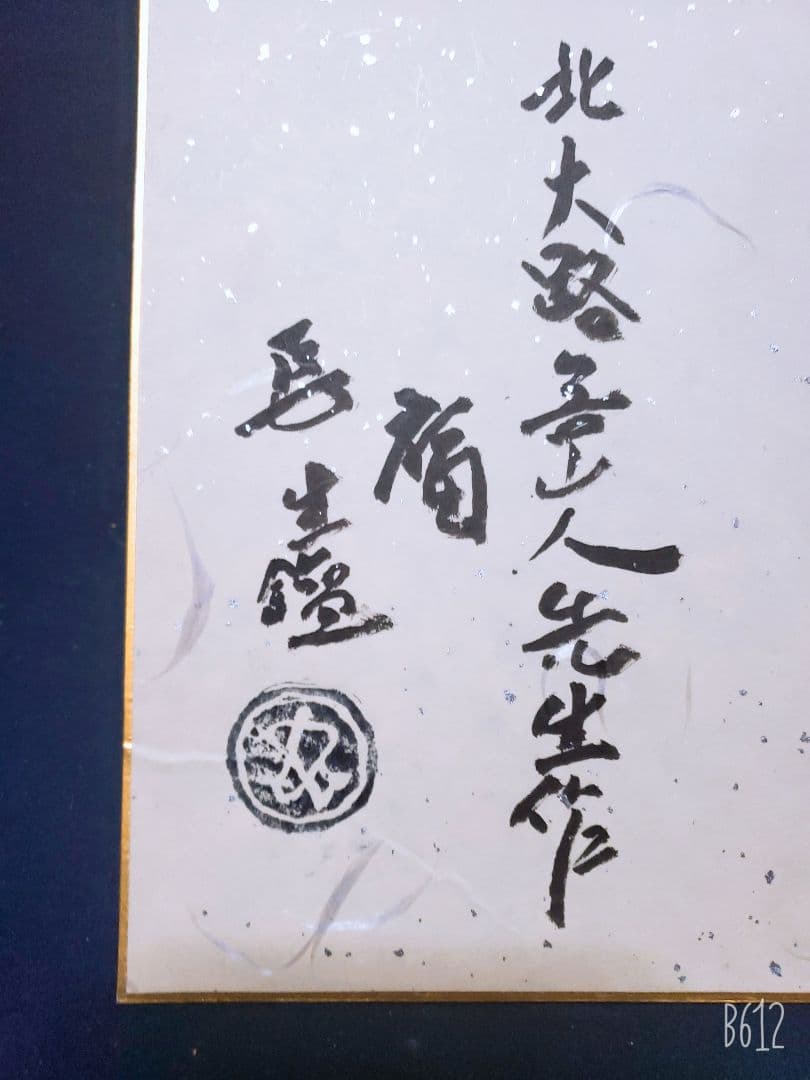 北大路魯山人先生作
福
長生鑑
B612